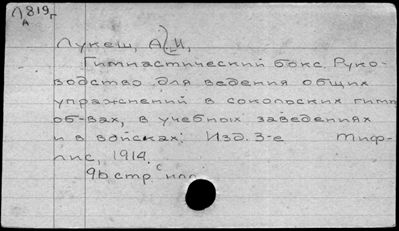 Л819г
А
Лукеш, А. И,
Гимнастический бокс. Руко-
водство для ведения общих
упражнений в сокольских гимн
об-вах, в учебных заведениях
и в войсках. Изд. 3-е Тиф-
лис, 1914.
96 стр. с илл